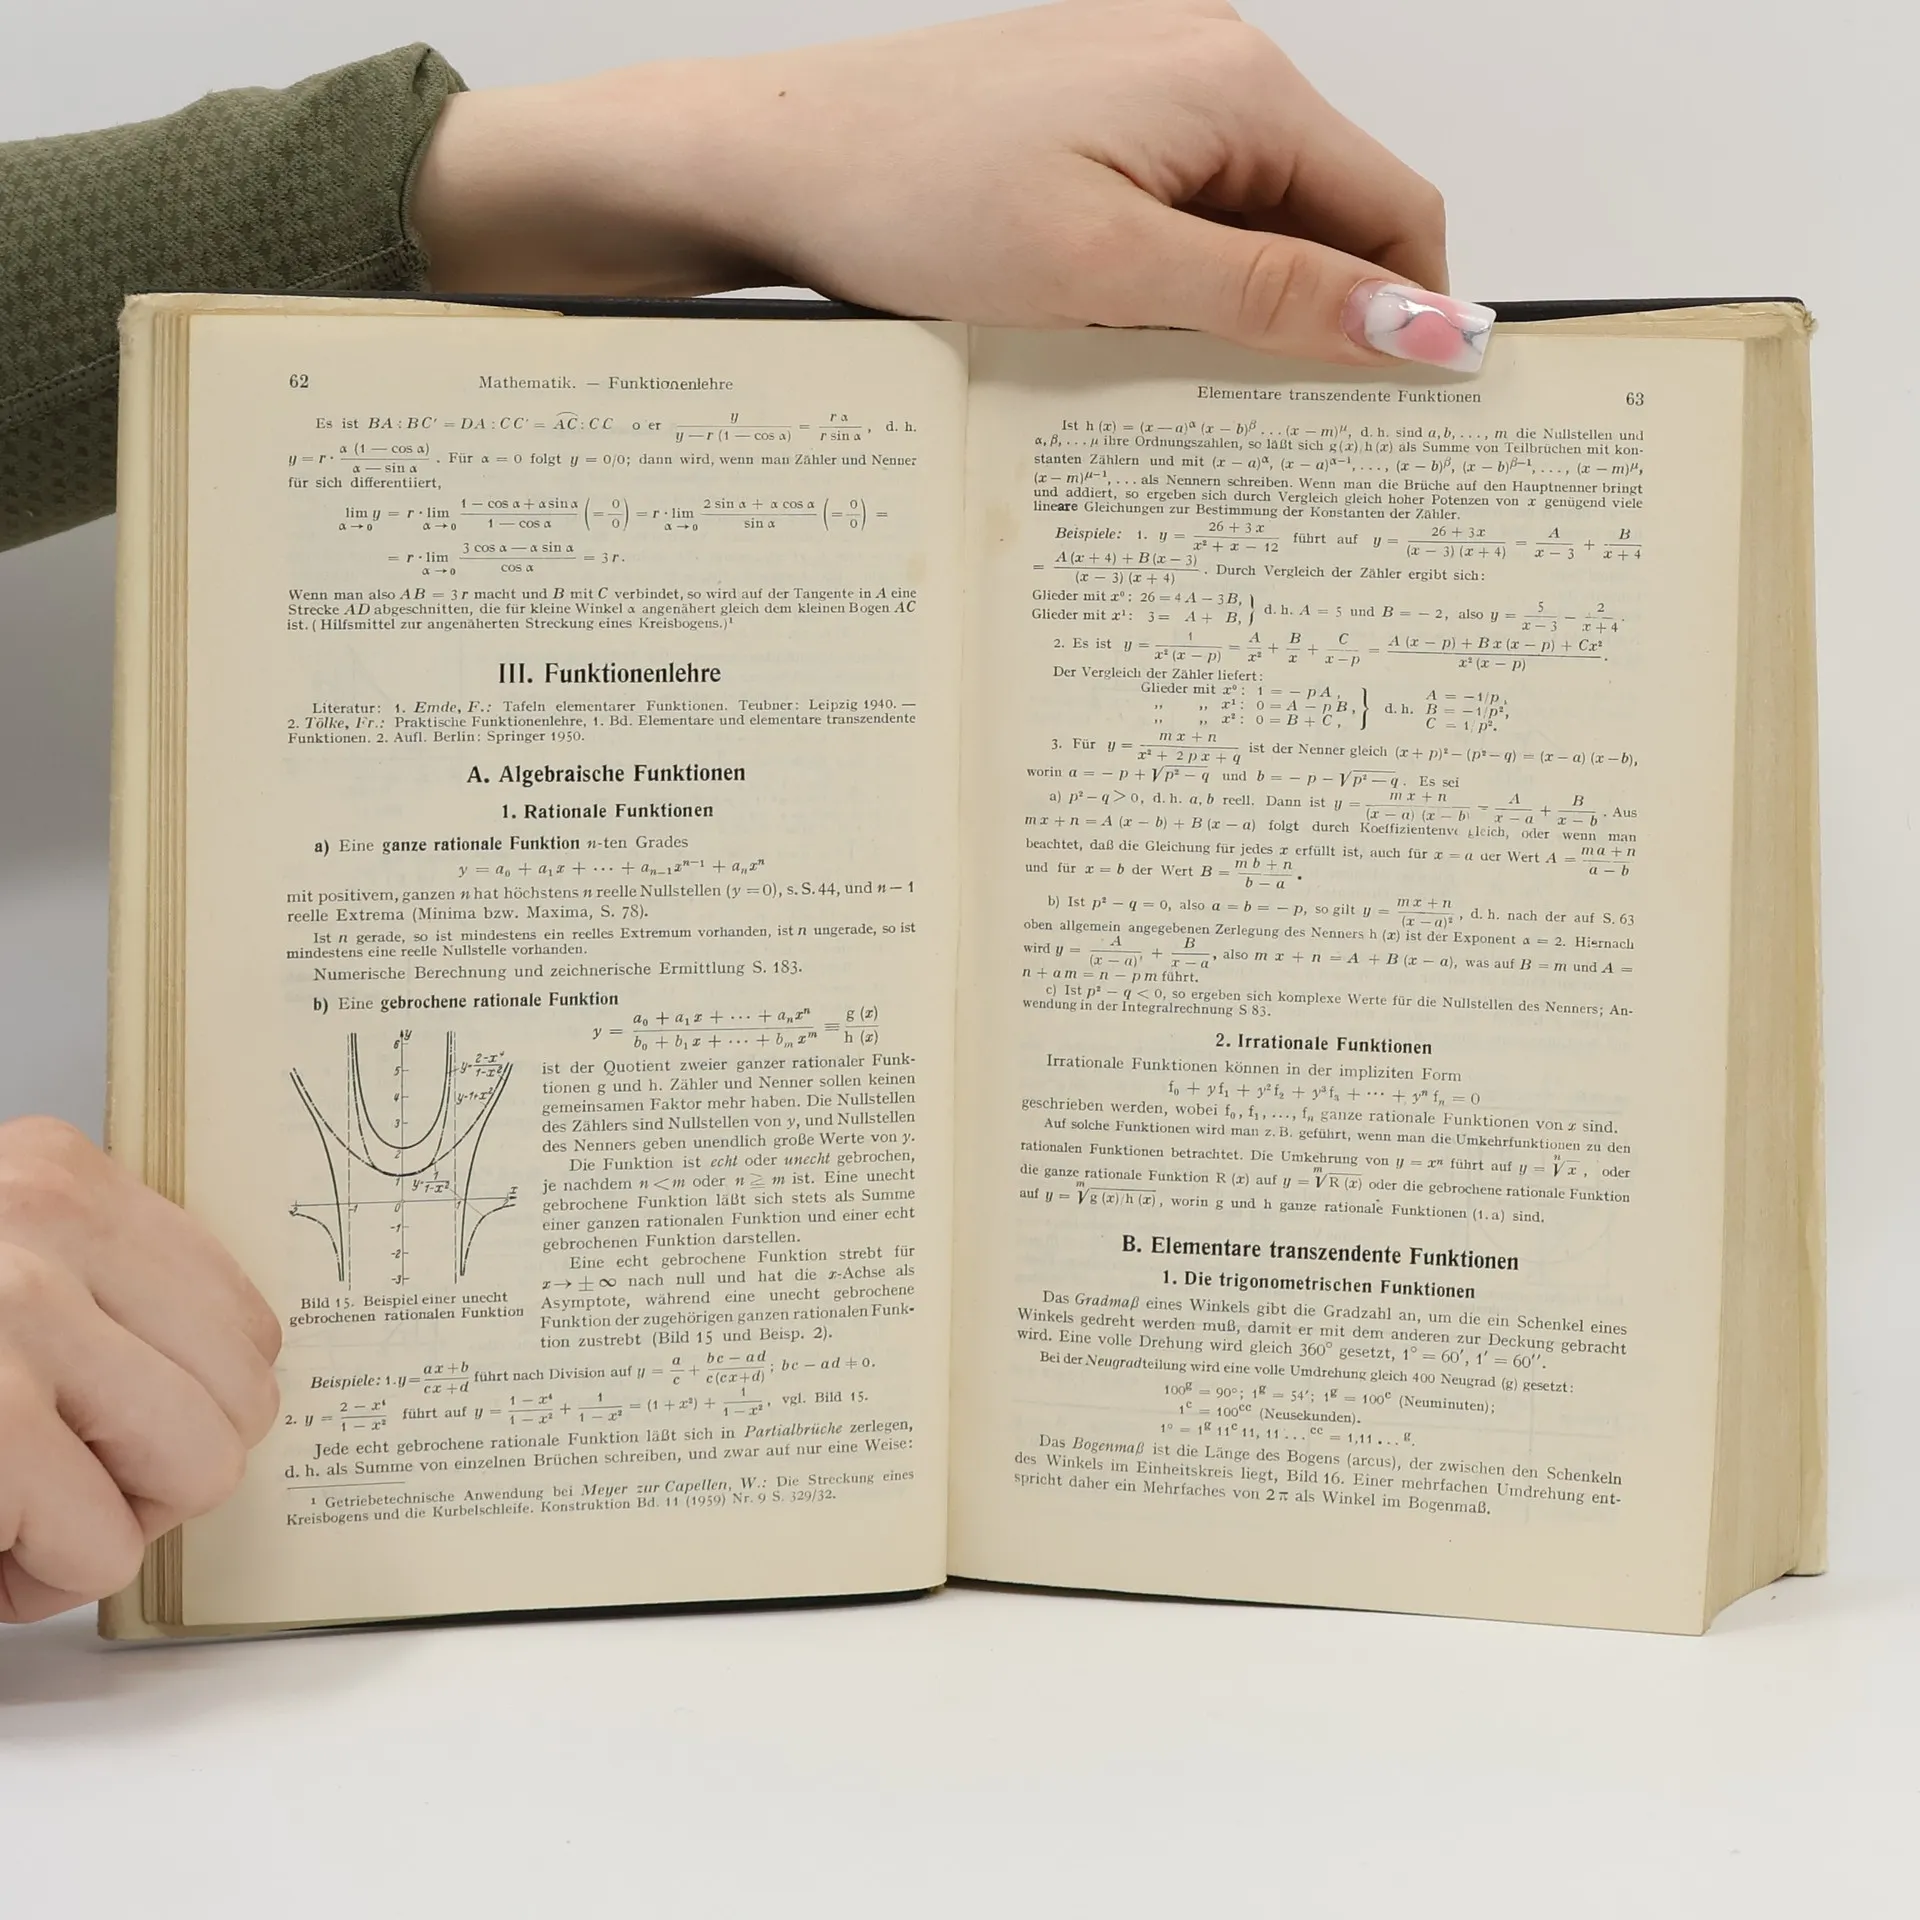 62
Mathematik. — Funktionenlehre
Es ist BA : BC′ = DA : CC′ = A͡C : CC o er y/(y — r (1 — cos α)) = r α/(r sin α), d. h.
y = r · α (1 — cos α)/(α — sin α). Für α = 0 folgt y = 0/0; dann wird, wenn man Zähler und Nenner
für sich differentiiert,
lim y = r · lim (1 — cos α + α sin α)/(1 — cos α) (= 0/0) = r · lim (2 sin α + α cos α)/(sin α) (= 0/0) =
α→0 α→0 α→0
= r · lim (3 cos α — α sin α)/(cos α) = 3 r.
α→0
Wenn man also AB = 3 r macht und B mit C verbindet, so wird auf der Tangente in A eine
Strecke AD abgeschnitten, die für kleine Winkel α angenähert gleich dem kleinen Bogen AC
ist. (Hilfsmittel zur angenäherten Streckung eines Kreisbogens.)¹
III. Funktionenlehre
Literatur: 1. Emde, F.: Tafeln elementarer Funktionen. Teubner: Leipzig 1940. —
2. Tölke, Fr.: Praktische Funktionenlehre, 1. Bd. Elementare und elementare transzendente
Funktionen. 2. Aufl. Berlin: Springer 1950.
A. Algebraische Funktionen
1. Rationale Funktionen
a) Eine ganze rationale Funktion n-ten Grades
y = a₀ + a₁x + ··· + aₙ₋₁xⁿ⁻¹ + aₙxⁿ
mit positivem, ganzen n hat höchstens n reelle Nullstellen (y = 0), s. S. 44, und n — 1
reelle Extrema (Minima bzw. Maxima, S. 78).
Ist n gerade, so ist mindestens ein reelles Extremum vorhanden, ist n ungerade, so ist
mindestens eine reelle Nullstelle vorhanden.
Numerische Berechnung und zeichnerische Ermittlung S. 183.
b) Eine gebrochene rationale Funktion
y = (a₀ + a₁x + ··· + aₙxⁿ)/(b₀ + b₁x + ··· + bₘxᵐ) = g (x)/h (x)
ist der Quotient zweier ganzer rationaler Funk-
tionen g und h. Zähler und Nenner sollen keinen
gemeinsamen Faktor mehr haben. Die Nullstellen
des Zählers sind Nullstellen von y, und Nullstellen
des Nenners geben unendlich große Werte von y.
Die Funktion ist echt oder unecht gebrochen,
je nachdem n < m oder n ≧ m ist. Eine unecht
gebrochene Funktion läßt sich stets als Summe
einer ganzen rationalen Funktion und einer echt
gebrochenen Funktion darstellen.
Eine echt gebrochene Funktion strebt für
x → ± ∞ nach null und hat die x-Achse als
Asymptote, während eine unecht gebrochene
Funktion der zugehörigen ganzen rationalen Funk-
tion zustrebt (Bild 15 und Beisp. 2).
y
6
5
4
3
2
1
0
-1
-2
-3
-2
-1
1
x
y=(2-x⁴)/(1-x²)
y=1+x²
y=1/(1-x²)
Bild 15. Beispiel einer unecht
gebrochenen rationalen Funktion
Beispiele: 1. y = (ax + b)/(cx + d) führt nach Division auf y = a/c + (bc — ad)/(c(cx+d)); bc — ad ≠ 0.
2. y = (2 — x⁴)/(1 — x²) führt auf y = (1 — x⁴)/(1 — x²) + 1/(1 — x²) = (1 + x²) + 1/(1 — x²), vgl. Bild 15.
Jede echt gebrochene rationale Funktion läßt sich in Partialbrüche zerlegen,
d. h. als Summe von einzelnen Brüchen schreiben, und zwar auf nur eine Weise:
¹ Getriebetechnische Anwendung bei Meyer zur Capellen, W.: Die Streckung eines
Kreisbogens und die Kurbelschleife. Konstruktion Bd. 11 (1959) Nr. 9 S. 329/32.
Elementare transzendente Funktionen
63
Ist h (x) = (x — a)^α (x — b)^β ... (x — m)^μ, d. h. sind a, b, ..., m die Nullstellen und
α, β, ... μ ihre Ordnungszahlen, so läßt sich g(x)/h(x) als Summe von Teilbrüchen mit kon-
stanten Zählern und mit (x — a)^α, (x — a)^(α—1), ..., (x — b)^β, (x — b)^(β—1), ..., (x — m)^μ,
(x — m)^(μ—1), ... als Nennern schreiben. Wenn man die Brüche auf den Hauptnenner bringt
und addiert, so ergeben sich durch Vergleich gleich hoher Potenzen von x genügend viele
lineare Gleichungen zur Bestimmung der Konstanten der Zähler.
Beispiele: 1. y = (26 + 3x)/(x² + x — 12) führt auf y = (26 + 3x)/((x — 3) (x + 4)) = A/(x — 3) + B/(x + 4)
= (A (x + 4) + B (x — 3))/((x — 3) (x + 4)). Durch Vergleich der Zähler ergibt sich:
Glieder mit x⁰: 26 = 4 A — 3B,
Glieder mit x¹: 3 = A + B, } d. h. A = 5 und B = — 2, also y = 5/(x — 3) — 2/(x + 4).
2. Es ist y = 1/(x² (x — p)) = A/x² + B/x + C/(x — p) = (A (x — p) + B x (x — p) + Cx²)/(x² (x — p)).
Der Vergleich der Zähler liefert:
Glieder mit x⁰: 1 = — p A, A = —1/p,
„ „ x¹: 0 = A — p B, } d. h. B = —1/p²,
„ „ x²: 0 = B + C, C = 1/p².
3. Für y = (m x + n)/(x² + 2 p x + q) ist der Nenner gleich (x + p)² — (p² — q) = (x — a) (x — b),
worin a = — p + √(p² — q) und b = — p — √(p² — q). Es sei
a) p² — q > 0, d. h. a, b reell. Dann ist y = (m x + n)/((x — a) (x — b) = A/(x — a) + B/(x — b). Aus
m x + n = A (x — b) + B (x — a) folgt durch Koeffizientenve gleich, oder wenn man
beachtet, daß die Gleichung für jedes x erfüllt ist, auch für x = a der Wert A = (m a + n)/(a — b)
und für x = b der Wert B = (m b + n)/(b — a).
b) Ist p² — q = 0, also a = b = — p, so gilt y = (m x + n)/(x — a)², d. h. nach der auf S. 63
oben allgemein angegebenen Zerlegung des Nenners h (x) ist der Exponent α = 2. Hiernach
wird y = A/(x — a)² + B/(x — a), also m x + n = A + B (x — a), was auf B = m und A =
n + a m = n — p m führt.
c) Ist p² — q < 0, so ergeben sich komplexe Werte für die Nullstellen des Nenners; An-
wendung in der Integralrechnung S 83.
2. Irrationale Funktionen
Irrationale Funktionen können in der impliziten Form
f₀ + y f₁ + y² f₂ + y³ f₃ + ··· + yⁿ fₙ = 0
geschrieben werden, wobei f₀, f₁, ..., fₙ ganze rationale Funktionen von x sind.
Auf solche Funktionen wird man z. B. geführt, wenn man die Umkehrfunktionen zu den
rationalen Funktionen betrachtet. Die Umkehrung von y = xⁿ führt auf y = ⁿ√x, oder
die ganze rationale Funktion R (x) auf y = ᵐ√R (x) oder die gebrochene rationale Funktion
auf y = ᵐ√(g (x)/h (x)), worin g und h ganze rationale Funktionen (1. a) sind.
B. Elementare transzendente Funktionen
1. Die trigonometrischen Funktionen
Das Gradmaß eines Winkels gibt die Gradzahl an, um die ein Schenkel eines
Winkels gedreht werden muß, damit er mit dem anderen zur Deckung gebracht
wird. Eine volle Drehung wird gleich 360° gesetzt, 1° = 60′, 1′ = 60″.
Bei der Neugradteilung wird eine volle Umdrehung gleich 400 Neugrad (g) gesetzt:
100ᵍ = 90°; 1ᵍ = 54′; 1ᵍ = 100ᶜ (Neuminuten);
1ᶜ = 100ᶜᶜ (Neusekunden).
1° = 1ᵍ 11ᶜ 11, 11 ... ᶜᶜ = 1,11 ... ᵍ.
Das Bogenmaß ist die Länge des Bogens (arcus), der zwischen den Schenkeln
des Winkels im Einheitskreis liegt, Bild 16. Einer mehrfachen Umdrehung ent-
spricht daher ein Mehrfaches von 2 π als Winkel im Bogenmaß.